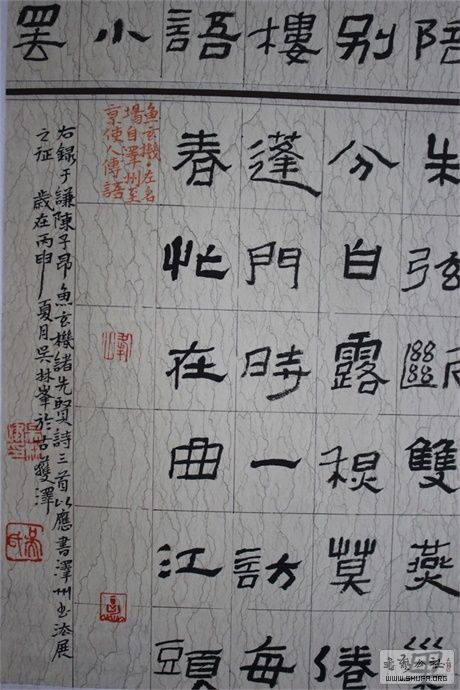 陪
别
樓
語
小
罢
朱弦斷雙燕巢
分白露秋莫倦
蓬門時一訪每
春忙在曲江頭
魚玄機·左名
場自澤州至
京使人傳語
右録于謙陳子昂魚玄機諸先賢詩三首以應書澤州書法展
之征 歲在丙申夏月吳林峯於古濩澤
WWW.SHUFA.ORG